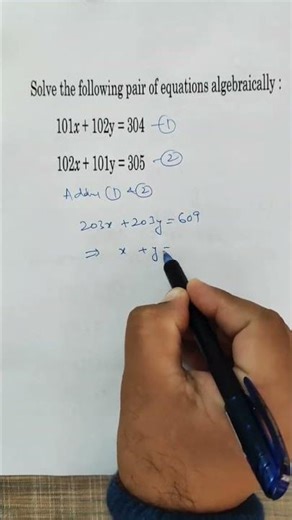 Solve the following pair of equations algebraically :
101x + 102y = 304 —①
102x + 101y = 305 —②
Adding ① & ②
203x + 203y = 609
⇒ x + y =